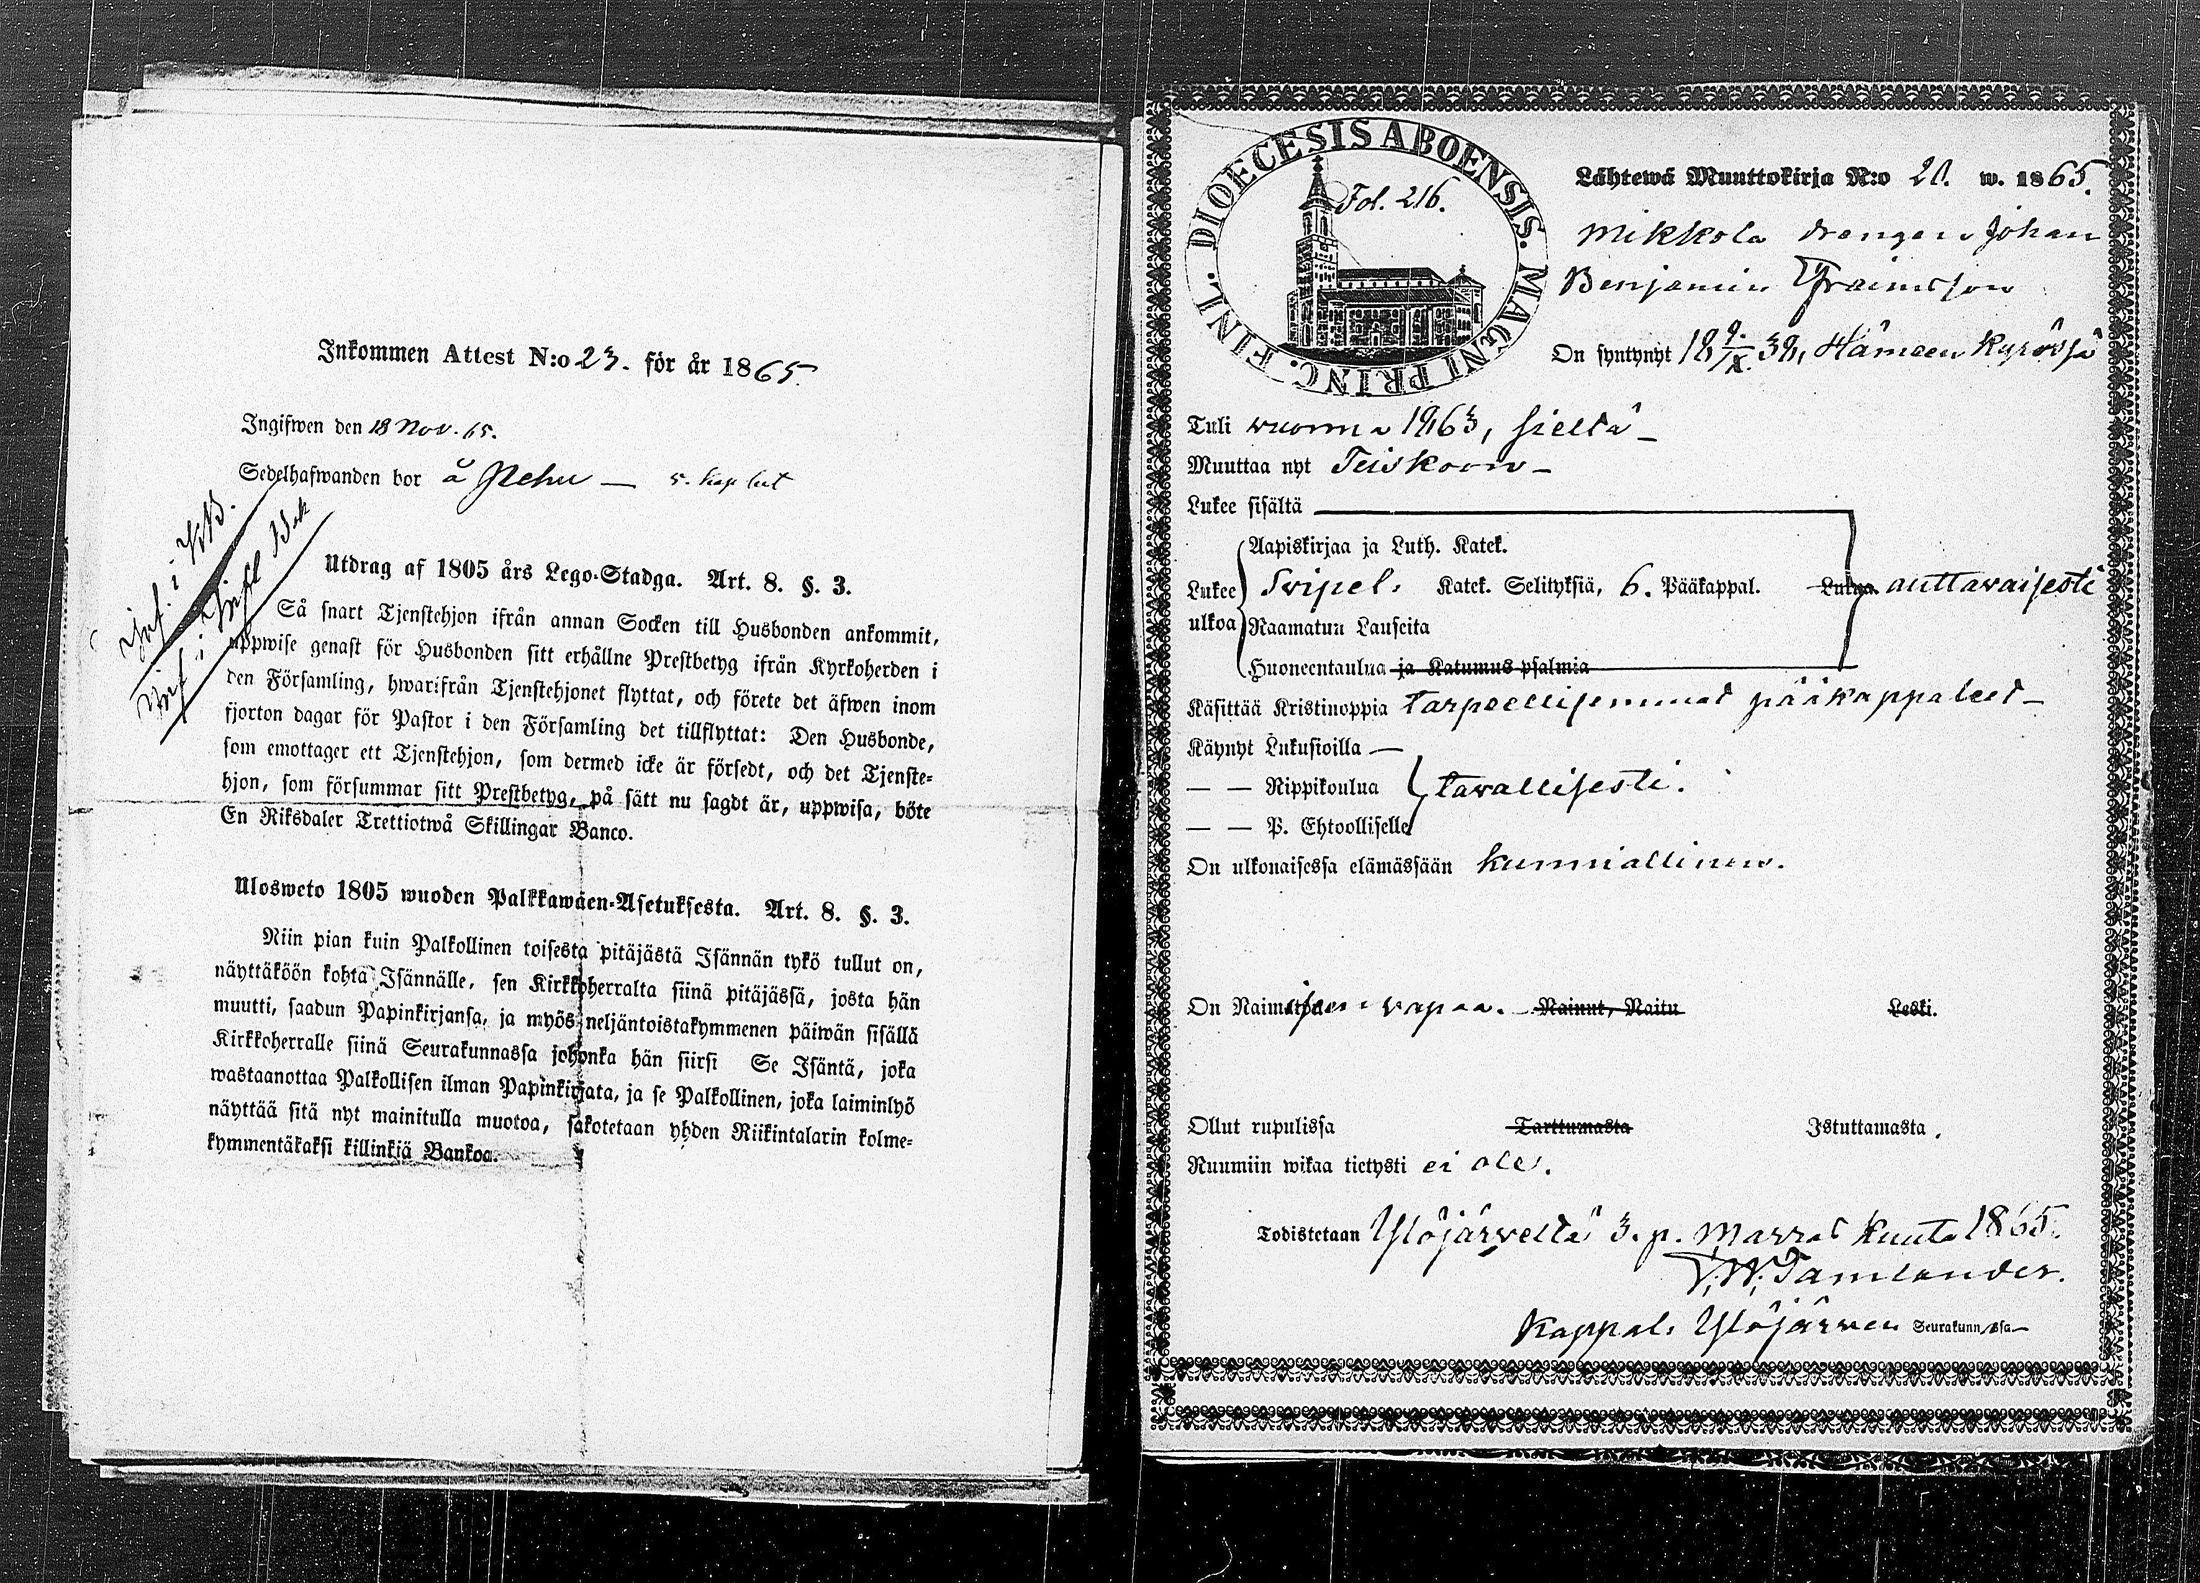 Inkommen Attest N:o 23. för år 1865.
Ingifwen den 18 Nov. 65.
Sedelhafwanden bor å Nehu — 5. kap lut
Inf. i KB.
Inf. i
Utdrag af 1805 års Lego-Stadga. Art. 8. §. 3.
Så snart Tjenstehjon ifrån annan Socken till Husbonden ankommit,
uppwise genast för Husbonden sitt erhållne Prestbetyg ifrån Kyrkoherden i
den Församling, hwarifrån Tjenstehjonet flyttat, och förete det äfwen inom
fjorton dagar för Pastor i den Församling det tillflyttat: Den Husbonde,
som emottager ett Tjenstehjon, som dermed icke är försedt, och det Tjenste-
hjon, som försummar sitt Prestbetyg, på sätt nu sagdt är, uppwisa, böte
En Riksdaler Trettiotwå Skillingar Banco.
Ulosweto 1805 wuoden Palkkawäen-Asetuksesta. Art. 8. §. 3.
Niin pian kuin Palkollinen toisesta pitäjästä Isännän tykö tullut on,
näyttäköön kohta Isännälle, sen Kirkkoherralta siinä pitäjässä, josta hän
muutti, saadun Papinkirjansa, ja myös neljäntoistakymmenen päiwän sisällä
Kirkkoherralle siinä Seurakunnassa johonka hän siirsi Se Isäntä, joka
wastaanottaa Palkollisen ilman Papinkirjata, ja se Palkollinen, joka laiminlyö
näyttää sitä nyt mainitulla muotoa, sakotetaan yhden Riikintalarin kolme-
kymmentäkaksi killinkiä Bankoa.
FINL. DIOECESIS ABOENSIS. MAGNI PRINC.
Fol. 216.
Lähtewä Muuttokirja N:o 20. w. 1865.
Mikkola drengen Johan
Benjamin Fraimsson
On syntynyt 18 9/X. 38, Hämeen Kyrössä
Tuli wuonna 1863, sieltä —
Muuttaa nyt Teiskoon —
Lukee sisältä
Aapiskirjaa ja Luth. Katek.
Lukee ulkoa Svipel. Katek. Selityksiä, 6. Pääkappal. Lukua auttavaisesti
Raamatun Lauseita
Huoneentaulua ja Katumus-psalmia
Käsittää Kristinoppia tarpeellisemmat pääkappaleet —
Käynyt Lukusioilla —
— — Rippikoulua tavallisesti.
— — P. Ehtoollisella
On ulkonaisessa elämässään kunniallinen.
On Naimatoin ja vapaa. — Nainut, Naitu Leski.
Ollut rupulissa Tarttumasta Istuttamasta.
Ruumiin wikaa tietysti ei ole.
Todistetaan Ylöjärveltä 3. p. Marras kuuta 1865.
V. W. Tamlander.
Kappal. Ylöjärven Seurakunnassa —